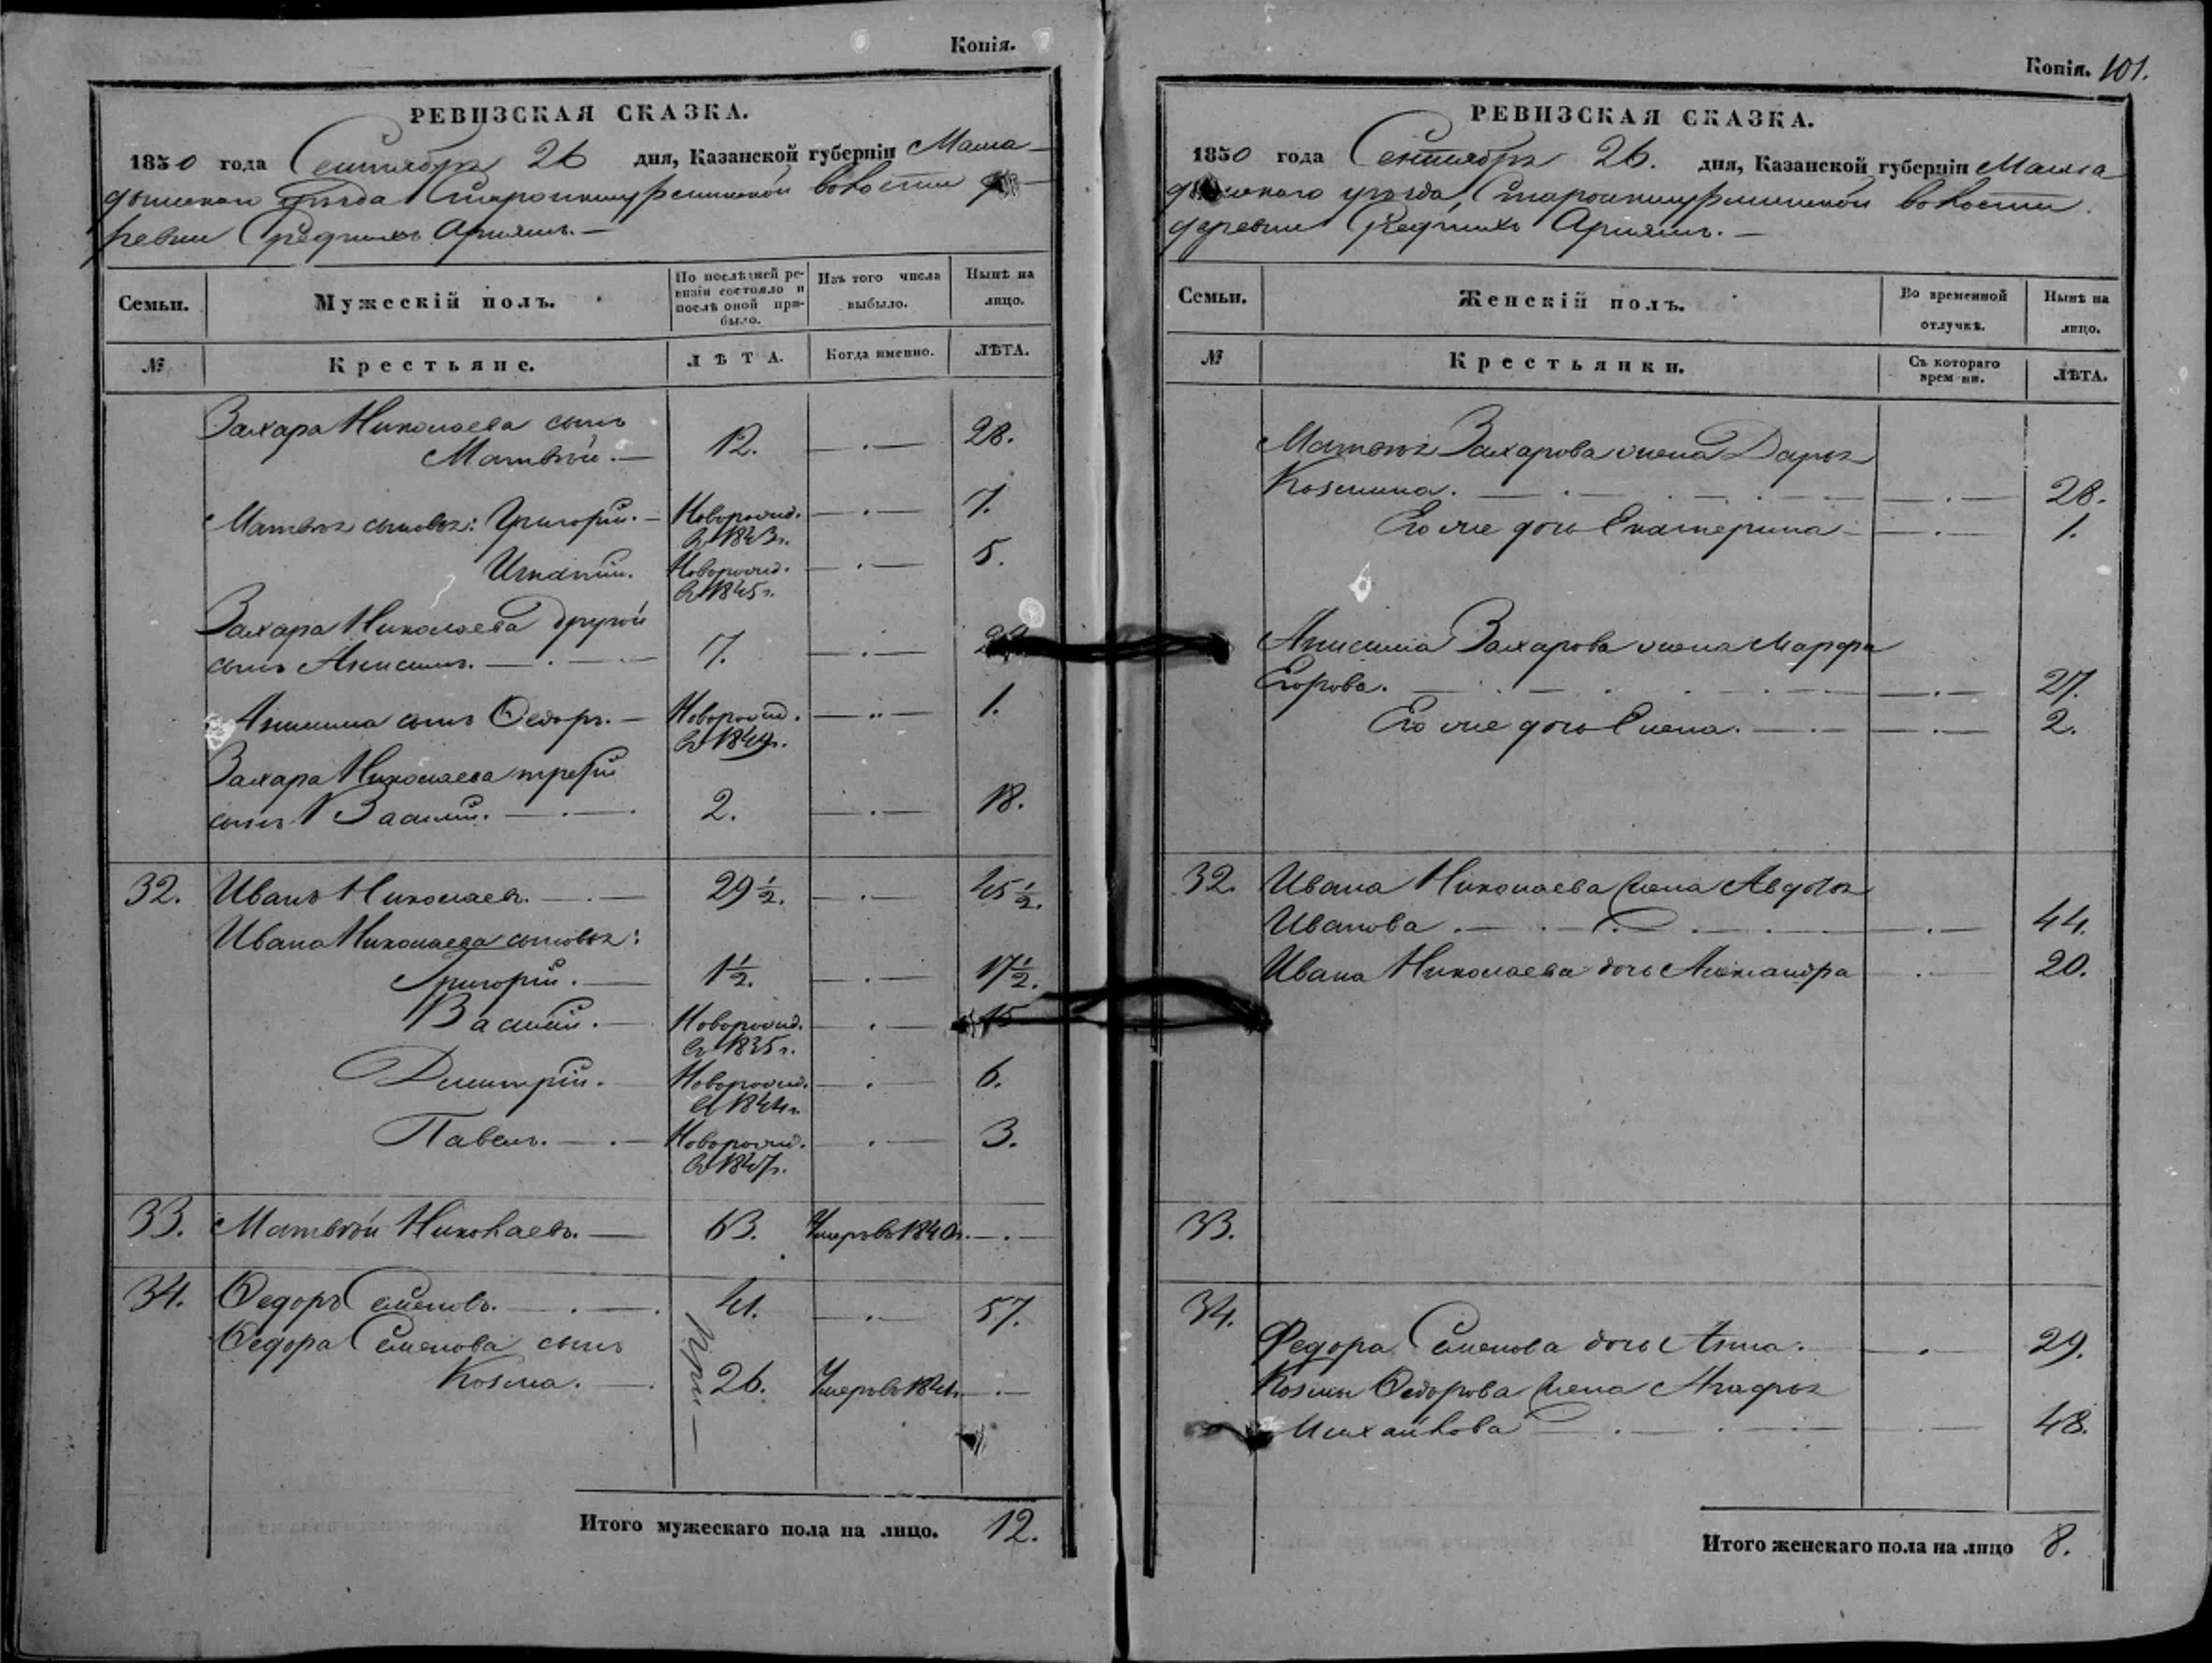 Копія.
РЕВИЗСКАЯ СКАЗКА.
1850 года Сентября 26 дня, Казанской губерніи Мама-
дышскаго уѣзда Старокишурминской волости де-
ревни Среднихъ Арняшъ.
Семьи. Мужескій полъ. По послѣдней ре- Изъ того числа Нынѣ на
визіи состояло и выбыло. лицо.
послѣ оной при-
было.
№ Крестьяне. ЛѢТА. Когда именно. ЛѢТА.
Захара Николаева сынъ
Матвѣй. 12. 28.
Матвѣя сыновья: Григорій. Новорожд. 7.
въ 1843 г.
Игнатій. Новорожд. 5.
въ 1845 г.
Захара Николаева другой
сынъ Анисимъ. 7.
Анисима сынъ Ѳедоръ. Новорожд. 1.
въ 1849 г.
Захара Николаева третій
сынъ Василій. 2. 18.
32. Иванъ Николаевъ. 29 ½. 45 ½.
Ивана Николаева сыновья:
Григорій. 1 ½. 17 ½.
Василій. Новорожд. 15
въ 1835 г.
Дмитрій. Новорожд. 6.
въ 1844 г.
Павелъ. Новорожд. 3.
въ 1847 г.
33. Матвѣй Николаевъ. 63. Умеръ въ 1840 г.
34. Ѳедоръ Семеновъ. 41. 57.
Ѳедора Семенова сынъ
Козма. 26. Умеръ въ 1841 г.
Итого мужескаго пола на лицо. 12.
Копія. 101.
РЕВИЗСКАЯ СКАЗКА.
1850 года Сентября 26. дня, Казанской губерніи Мама
дышскаго уѣзда, Старокишурминской волости.
деревни Среднихъ Арняшъ.
Семьи. Женскій полъ. Во временной Нынѣ на
отлучкѣ. лицо.
№ Крестьянки. Съ котораго ЛѢТА.
врем ни.
Матвѣя Захарова жена Дарья
Козмина. 28.
Его же дочь Екатерина 1.
Анисима Захарова жена Марфа
Егорова. 27.
Его же дочь Елена. 2.
32. Ивана Николаева жена Авдотья
Иванова 44.
Ивана Николаева дочь Александра 20.
33.
34.
Федора Семенова дочь Анна. 29.
Козмы Ѳедорова жена Агафья
Михайлова 48.
Итого женскаго пола на лицо 8.